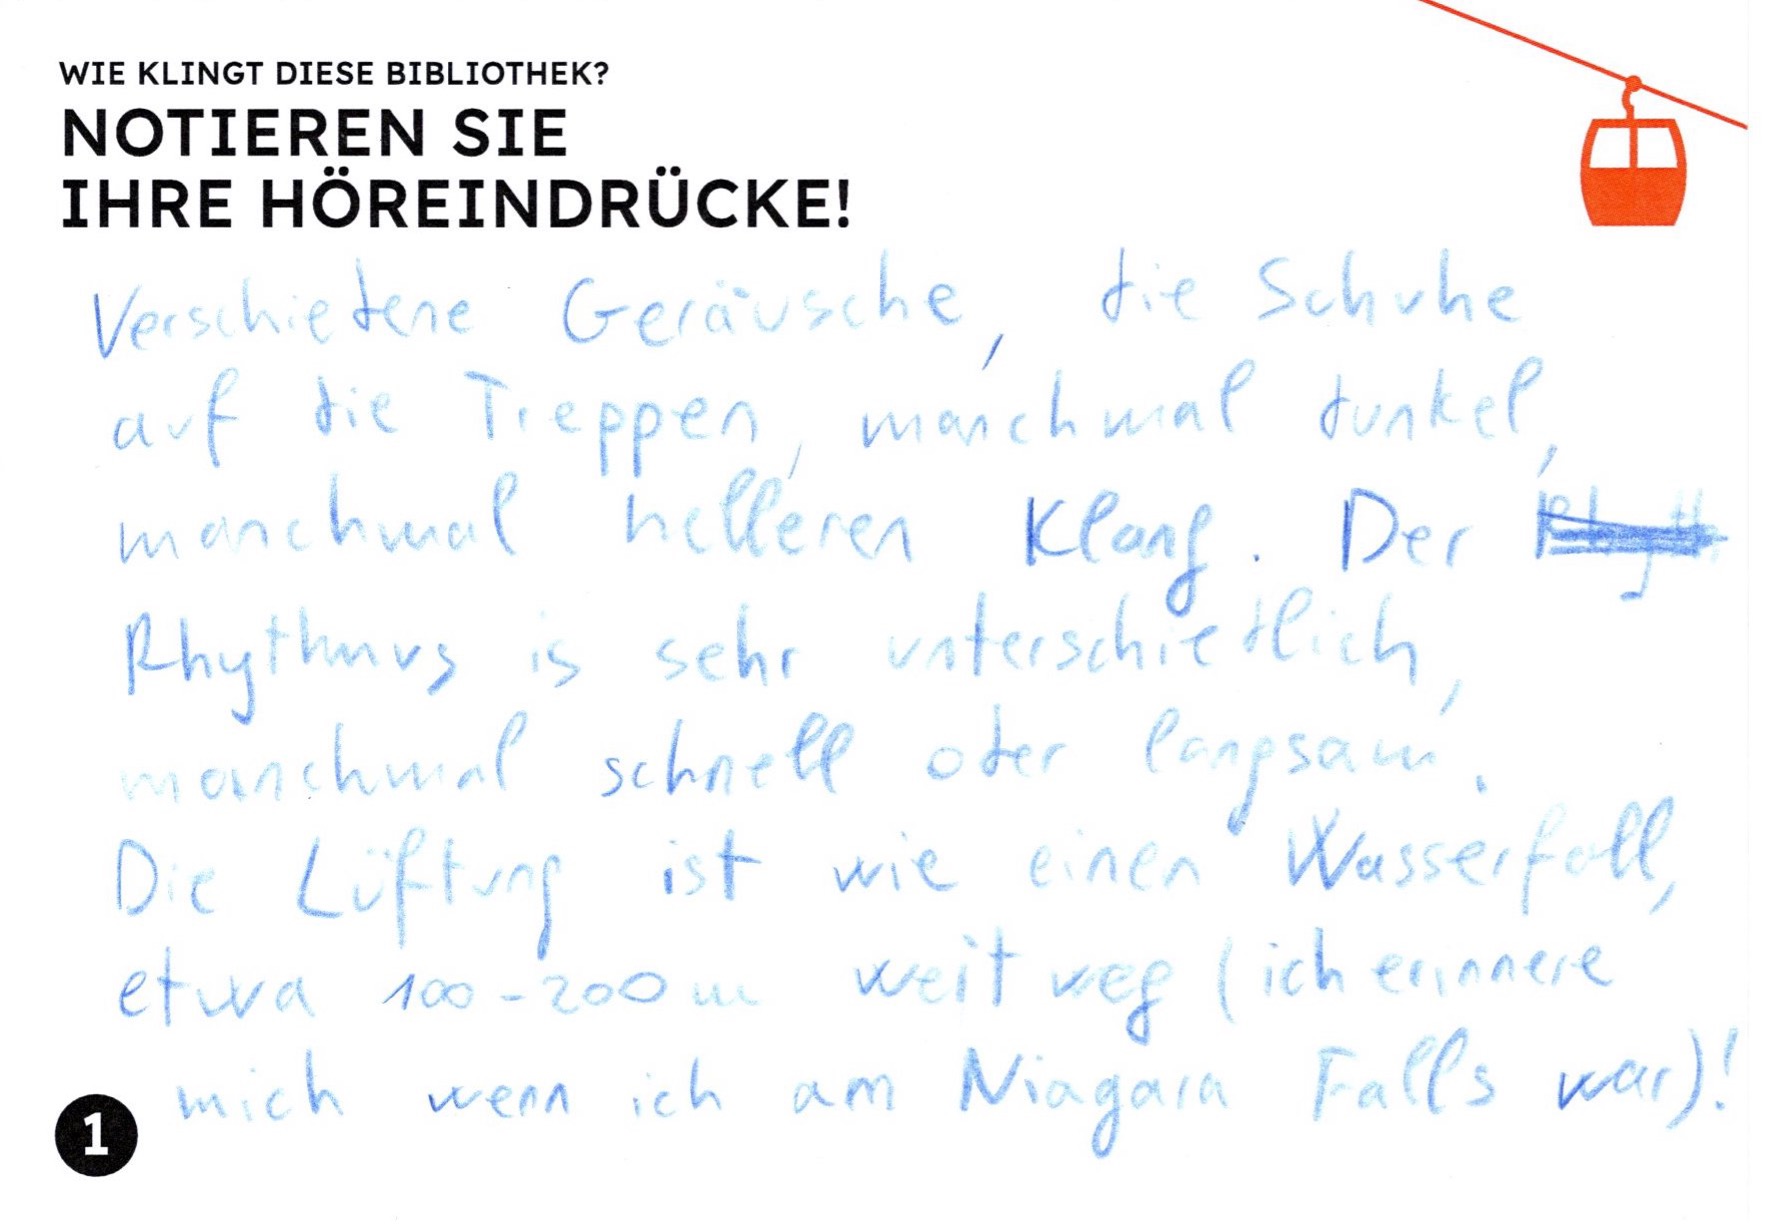 WIE KLINGT DIESE BIBLIOTHEK?
NOTIEREN SIE
IHRE HÖREINDRÜCKE!
Verschiedene Geräusche, die Schuhe
auf die Treppen, manchmal dunkel,
manchmal helleren Klang. Der
Rhythmus is sehr unterschiedlich,
manchmal schnell oder langsam.
Die Lüftung ist wie einen Wasserfall,
etwa 100-200m weit weg (ich erinnere
mich wenn ich am Niagara Falls war)!
1